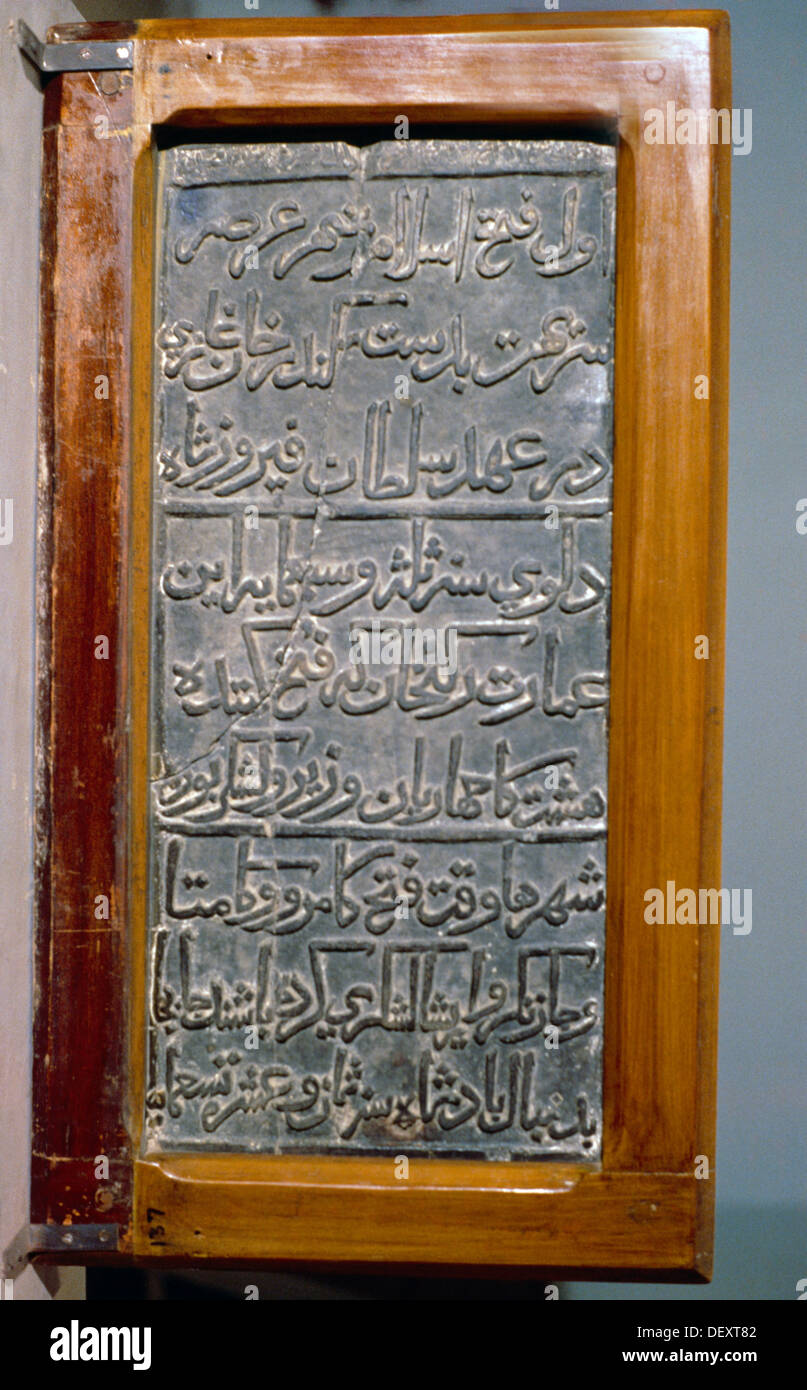 اول فتح اسلام شهر عرصه
سريهت بدست سكندر خان غازي
در عهد سلطان فيروز شاه
دلوي سنه ثلثه و سبعمايه اين
عمارت ركنخان كه فتح كننده
هشت كامهاريان وزير و لشكر بوده
شهرها وقت فتح كامرو و كامتا
و جازنكر و اريشا لشكري كرده باشند جابجا
بدنبال بادشاه سنه ثمان و عشر تسعمايه
137
alamy
alamy
Image ID: DEXT82
www.alamy.com